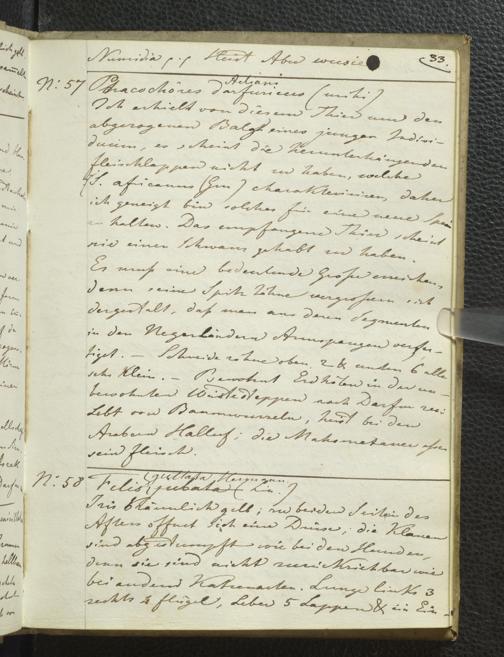 Numidia /:/ heist Abu
33.
N: 57 Phacochöres darfuricus (mihi)
Aeliani
Ich erhielt von diesem Thier nur den
abgezogenen Balg eines jungen Indivi-
duum, es scheint die herunterhängenden
fleischlappen nicht zu haben, welche
S. africanus (Gm) charakterisiren, daher
ich geneigt bin solches für eine neue
zu halten. Das empfangene Thier scheint
nie einen Schwanz gehabt zu haben.
Es muß eine bedeutende Größe erreichen,
denn seine Spitz Zähne vergrößern sich
dergestalt, daß man aus deren Segmenten
in den Negerländern Armspangen verfer-
tiget. – Schneidezähne oben 2 & unten 6 alle
sehr klein. – Bewohnt Erdhölen in den un-
bewohnten Wüstesteppen nach Darfur
Lebt von Baumwurzeln, heist bei den
Arabern Halluf; die Mahometaner essen
sein fleisch.
N: 58 Felis jubata (Lin.)
(guttata Hermann
Iris bräunlich gelb; zu beiden Seiten des
Afters öffnet sich eine Drüse; die Klauen
sind abgestumpft wie bei den Hunden,
denn sie sind nicht zurückziehbar wie
bei andern Katzenarten. Lunge links 3
rechts 4 flügel, Leber 5 Lappen &